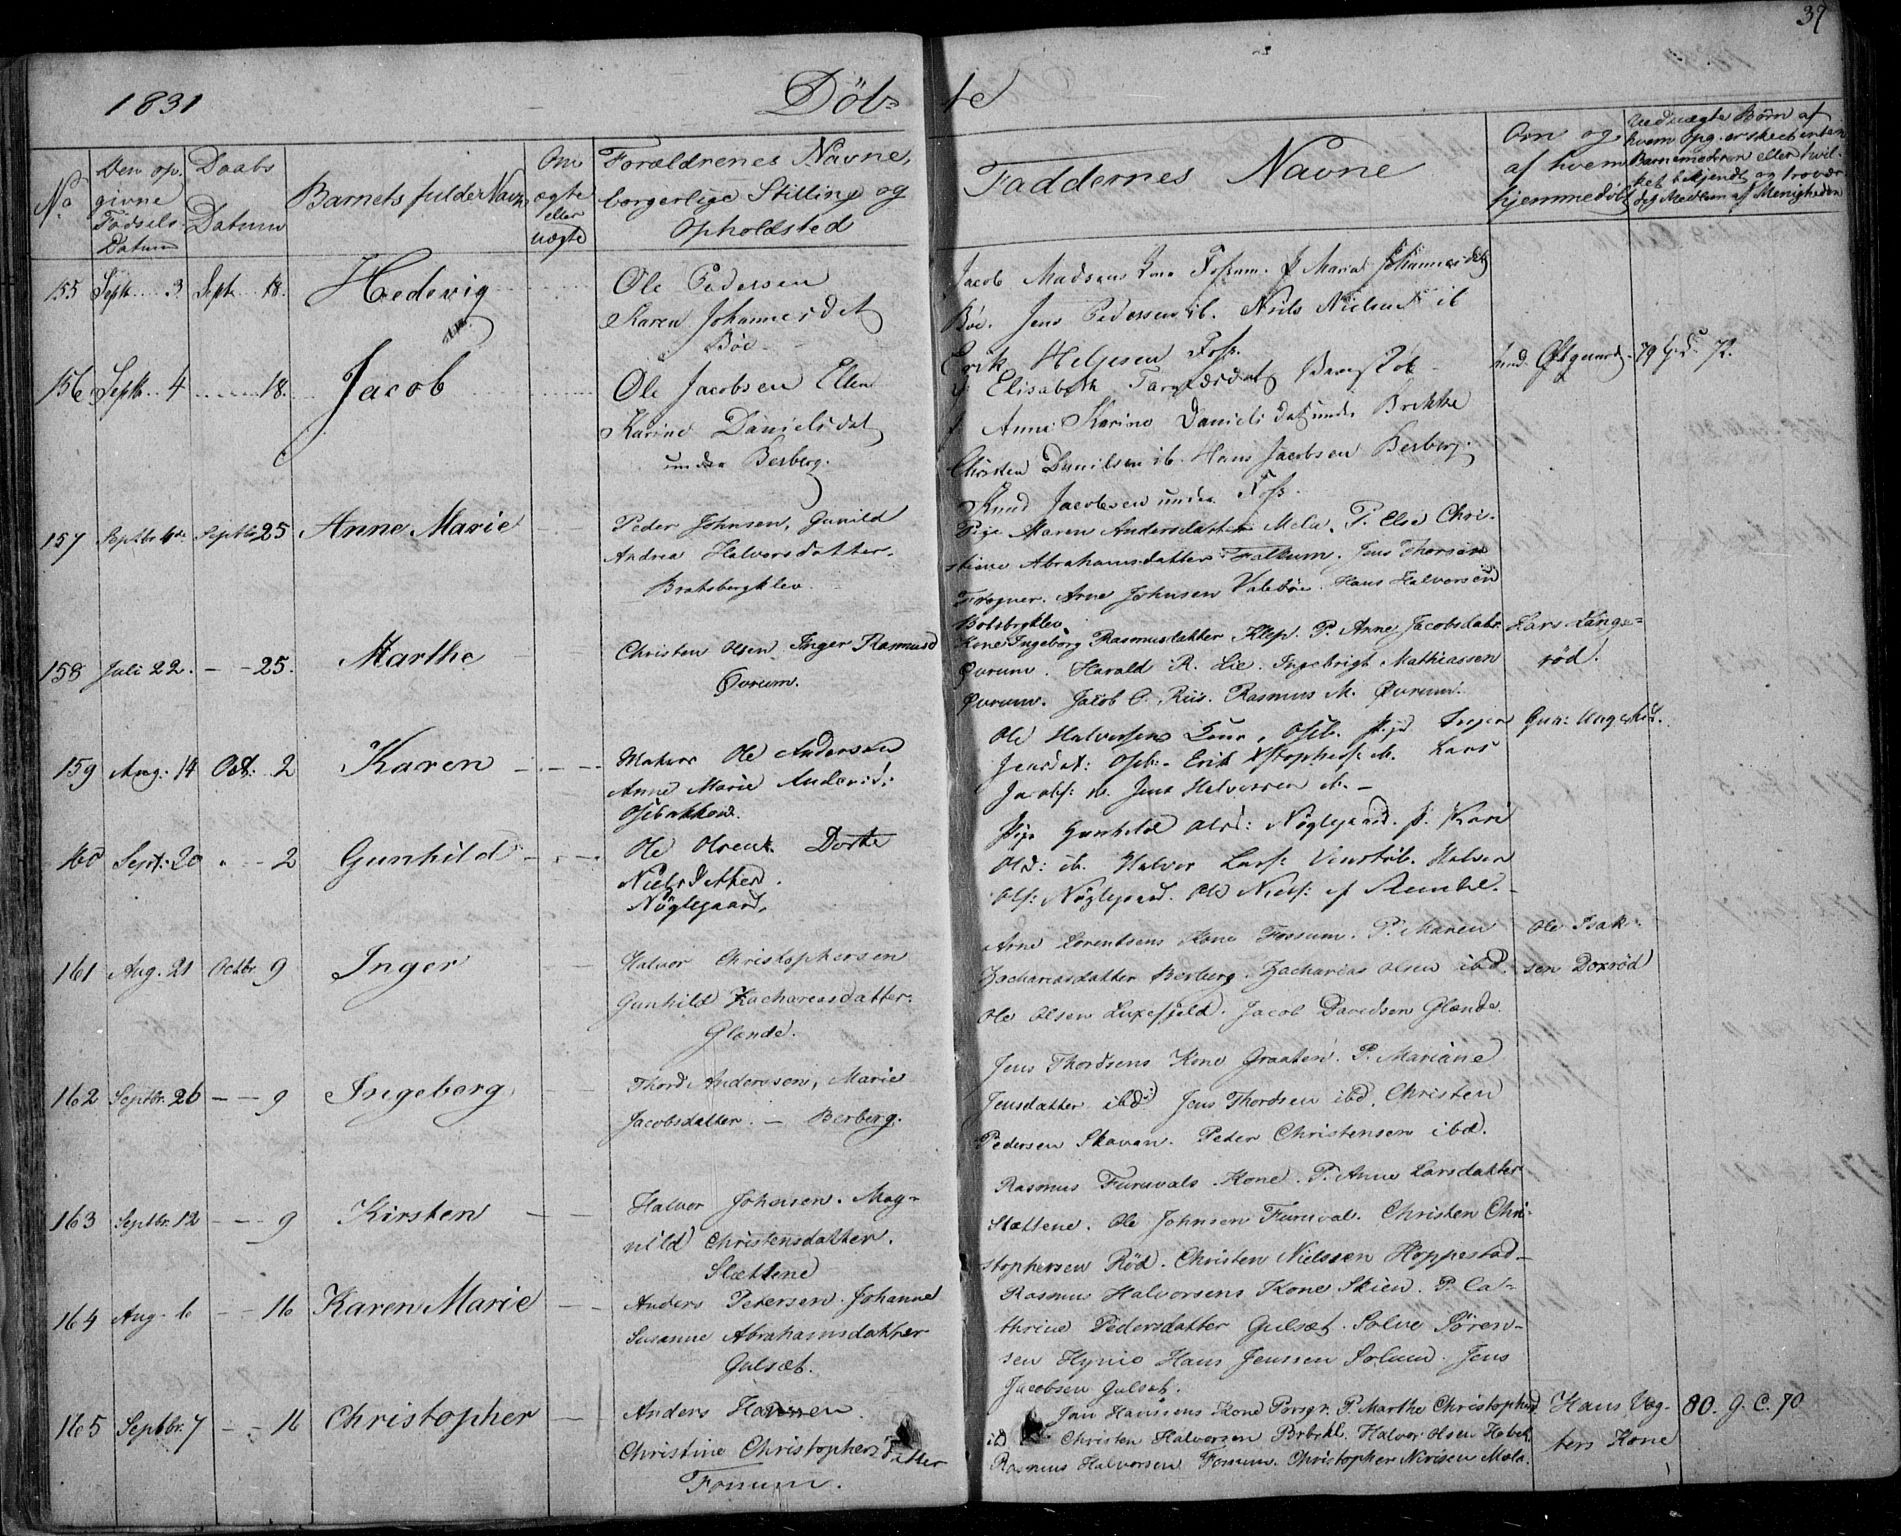 37
1831 Døb- te
No
Den op.
givne
Fødsels
Datum
Daabs
Datum
Barnets fulde Navn
Om
ægte
eller
uægte
Forældrenes Navne,
borgerlige Stilling og
Opholdsted
Faddernes Navne
Om og
af hvem
hjemmedøbt
hvem Opg. er skeet enten
Barnemoderen eller hvil-
ket bekjendt og trovær-
dig Medlem af Menigheden
155 Septb. 3. Septb. 18. Hedevig
Ole Pedersen
Karen Johannesdat
Bøe
Jacob Madsens Kone Fossum. P Maria Johannesdat
Bøe. Jens Pedersen ib. Niels Nielsen ib
Erik Helgesen Foss.
156 Septb. 4 18. Jacob
Ole Jacobsen Ellen
Karine Danielsdat
under Berberg.
Elisabeth
P Anne Karine Danielsdat under Brekke
Christen Danielsen ib. Hans Jacobsen Berberg.
Knud Jacobsen under Foss.
79 72.
157 Septbr. Septbr 25 Anne Marie
Peder Johnsen, Gunild
Andrea Halvorsdatter.
Bratsbergklev
Pige Maren Andersdatter Mela. P. Else Chri-
stine Abrahamsdatter Falkum. Jens Thorsen
Frogner. Arne Johnsen Valebøe. Hans Halvorsen
158 Juli 22. - - 25. Marthe
Christen Olsen Inger Rasmusd
Øvrum.
Kone Ingeborg Rasmusdatter Klep. P. Anne Jacobsdatr
Øvrum. Harald R. Lie. Ingebrigt Mathiassen
Øvrum. Jacob C. Riis. Rasmus M. Øvrum.
Lars Lange-
rød.
159 Aug: 14 Oct: 2 Karen
Matros Ole Andersen
Anne Marie Andersd:
Osebakken.
Ole Halvorsens Kone, Oseb. Pige
Jensdat: Oseb. Erik
Jacobs: ib. Jens Halvorsen ib. -
160 Sept: 20 " - 2 Gunhild
Ole Olsen. Dorte
Nielsdatter.
Nøglegaard.
Pige Gunhild Olsd: Nøglegaard. P. Kari
Olsd: ib. Halvor Lars: Halvor
Ols: Nøglegaard. Ole Niels:
161 Aug. 21 Octbr 9 Inger
Halvor Christophersen
Gunhild Zachariasdatter.
Glende.
Arne Lorentsens Kone Fossum. P. Maren
Zachariasdatter Berberg. Zacharias Olsen ibd.
Ole Olsen Luxefjeld. Jacob Davidsen Glænde.
Ole Isak-
sen Doxrød
162 Septbr. 26 - - 9 Ingeborg
Thord Andersen, Marie
Jacobsdatter. - Berberg.
Jens Thordsens Kone Graaten. P. Mariane
Jensdatter ibd: Jens Thordsen ibd. Christen
Pedersen Skavan. Peder Christensen ibd.
163 Septbr. 12 - - 9 Kirsten
Halvor Johnsen. Mag-
nild Christensdatter.
Slættene
Rasmus Furuvals Kone. P. Anne Larsdatter
Slættene. Ole Johnsen Furuval. Christen Chri-
stophersen Rød. Christen Nielssen Hoppestad
164 Aug. 6 - - 16 Karen Marie
Anders Petersen. Johanne
Susanne Abrahamsdatter
Gulsæt.
Rasmus Halvorsens Kone Skien. P. Ca-
thrine Pedersdatter Gulsæt. Solve Søren-
sen Hynie Hans Jenssen Solum. Jens
Jacobsen Gulsæt.
165 Septbr. 7 - - 16 Christopher
Anders Hansen
Christine Christophersdatter
Fossum.
Jan Hanssens Kone Porsgr. P. Marthe Christophersd
Christen Halvorsen Brbrkl. Halvor Olsen
Rasmus Halvorsen Fossum. Christopher Mæla.
Hans Væg-
ters Kone
80. g. C. 70